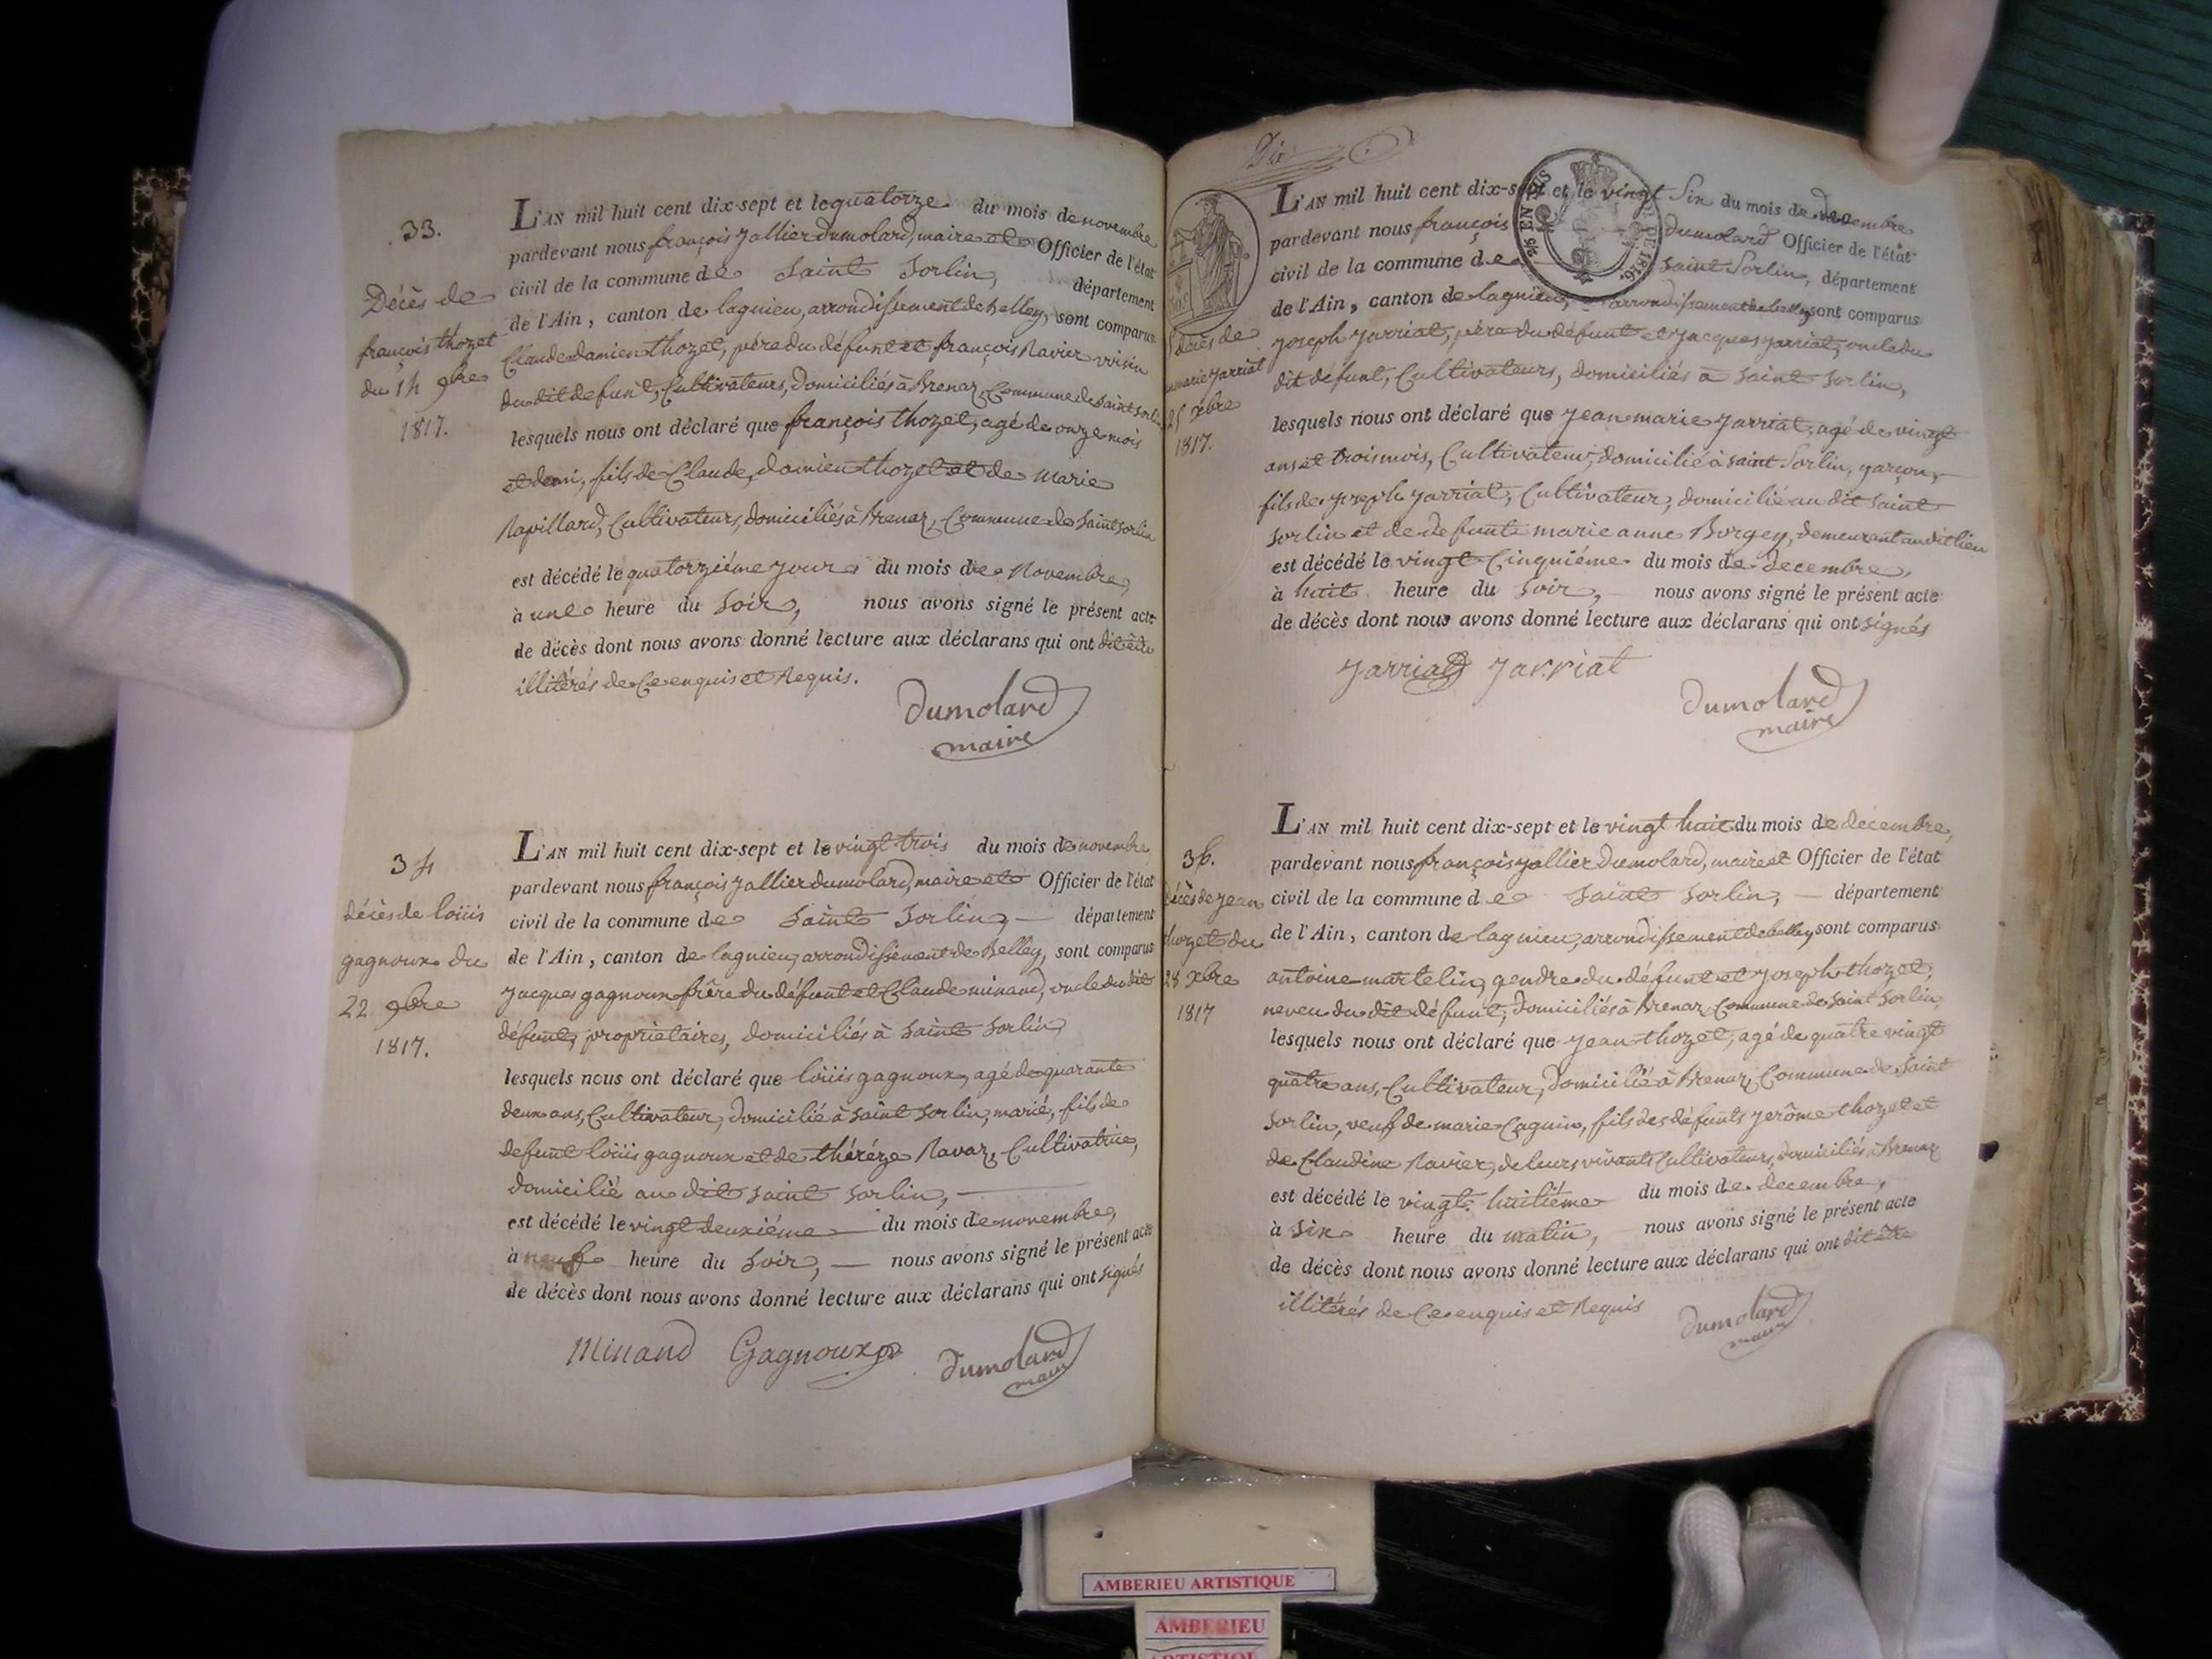 33.
Décès de
françois thozet
du 14 9bre
1817.
L'AN mil huit cent dix-sept et le quatorze du mois de novembre
pardevant nous françois Jallier dumolard, maire et Officier de l'état
civil de la commune de Saint Sorlin, département
de l'Ain, canton de lagnieu, arrondissement de Belley, sont comparus
Claude damien thozet, père du défunt et françois Ravier voisin
du dit defunt, Cultivateurs, domiciliés à Brenaz, Commune de Saint Sorlin
lesquels nous ont déclaré que françois thozet, agé de onze mois
et demi, fils de Claude, damien thozet et de marie
Rapillard, Cultivateurs, domiciliés à Brenaz, Commune de Saint Sorlin
est décédé le quatorziéme jour du mois de Novembre,
à une heure du Soir, nous avons signé le présent acte
de décès dont nous avons donné lecture aux déclarans qui ont dit être
illitérés de Ce enquis et Requis.
Dumolard
maire
34
décès de loüis
gagnoux du
22 9bre
1817.
L'AN mil huit cent dix-sept et le vingt trois du mois de novembre
pardevant nous françois Jallier dumolard, maire et Officier de l'état
civil de la commune de Saint Sorlin, département
de l'Ain, canton de lagnieu, arrondissement de Belley, sont comparus
Jacques gagnoux frère du défunt et Claude minand, oncle du dit
défunt, propriétaires, domiciliés à Saint Sorlin,
lesquels nous ont déclaré que loüis gagnoux, agé de quarante
deux ans, Cultivateur, domicilié à Saint Sorlin, marié, fils de
defunt loüis gagnoux et de théréze Ravaz, Cultivatrice,
domicilié au dit Saint Sorlin,
est décédé le vingt deuxiéme du mois de novembre,
à neuf heure du Soir, nous avons signé le présent acte
de décès dont nous avons donné lecture aux déclarans qui ont signés
Minand Gagnoux Dumolard
maire
Dix
décès de
marie Jarriat
25 xbre
1817.
L'AN mil huit cent dix-sept et le vingt Six du mois de decembre
pardevant nous françois dumolard Officier de l'état
civil de la commune de Saint Sorlin, département
de l'Ain, canton de lagnieu, arrondissement de belley sont comparus
Joseph Jarriat, père du défunt et Jacques Jarriat, oncle du
dit défunt, Cultivateurs, domiciliés à Saint Sorlin,
lesquels nous ont déclaré que Jean marie Jarriat, agé de vingt
ans et trois mois, Cultivateur, domicilié à Saint Sorlin, garçon,
fils de Joseph Jarriat, Cultivateur, domicilié au dit Saint
Sorlin et de defunte marie anne Borgey, demeurant au dit lieu
est décédé le vingt Cinquiéme du mois de decembre,
à huit heure du Soir, nous avons signé le présent acte
de décès dont nous avons donné lecture aux déclarans qui ont signés
Jarriat Jarriat
Dumolard
maire
36.
Décès de Jean
thozet du
28 xbre
1817
L'AN mil huit cent dix-sept et le vingt huit du mois de décembre,
pardevant nous françois Jallier Dumolard, maire et Officier de l'état
civil de la commune de Saint Sorlin, département
de l'Ain, canton de lagnieu, arrondissement de belley sont comparus
antoine martelin, gendre du défunt et Joseph thozet,
neveu du dit défunt, domiciliés à Brenaz, Commune de Saint Sorlin,
lesquels nous ont déclaré que Jean thozet, agé de quatre vingt
quatre ans, Cultivateur, domicilié à Brenaz, Commune de Saint
Sorlin, veuf de marie Cagnin, fils des défunts Jerôme thozet et
de Claudine Ravier, de leurs vivants Cultivateurs, domiciliés à Brenaz
est décédé le vingt huitiéme du mois de decembre,
à Six heure du matin, nous avons signé le présent acte
de décès dont nous avons donné lecture aux déclarans qui ont dit être
illitérés de Ce enquis et Requis
Dumolard
maire
AMBERIEU ARTISTIQUE
AMBERIEU
ARTISTIQUE